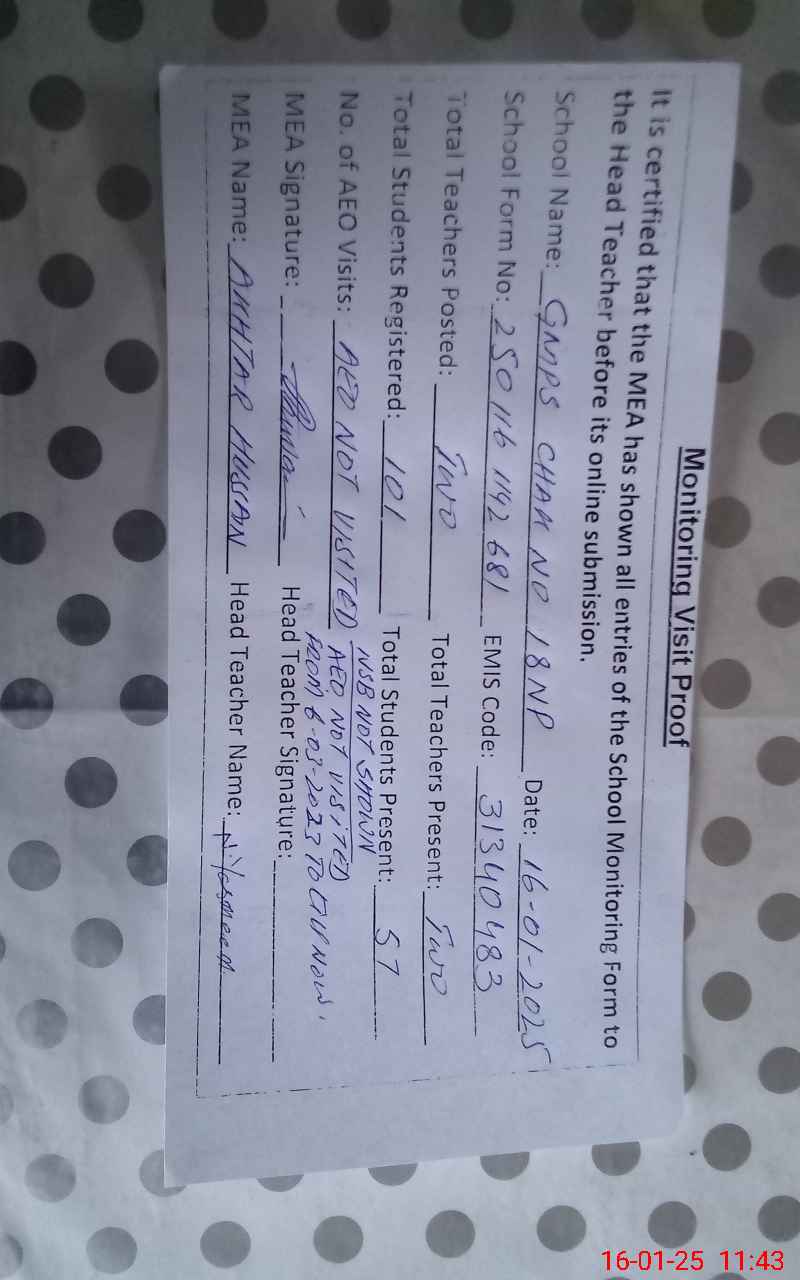 Monitoring Visit Proof
It is certified that the MEA has shown all entries of the School Monitoring Form to
the Head Teacher before its online submission.
School Name: GMPS CHAK NO 18NP Date: 16-01-2025
School Form No: 250116 1142 681 EMIS Code: 31340483
Total Teachers Posted: Two Total Teachers Present: Two
Total Students Registered: 101 Total Students Present: 57
NSB NOT SHOWN
No. of AEO Visits: AEO NOT VISITED AEO NOT VISITED
FROM 6-03-2023 To till Now.
MEA Signature: Head Teacher Signature:
MEA Name: AKHTAR HUSSAN Head Teacher Name:
16-01-25 11:43